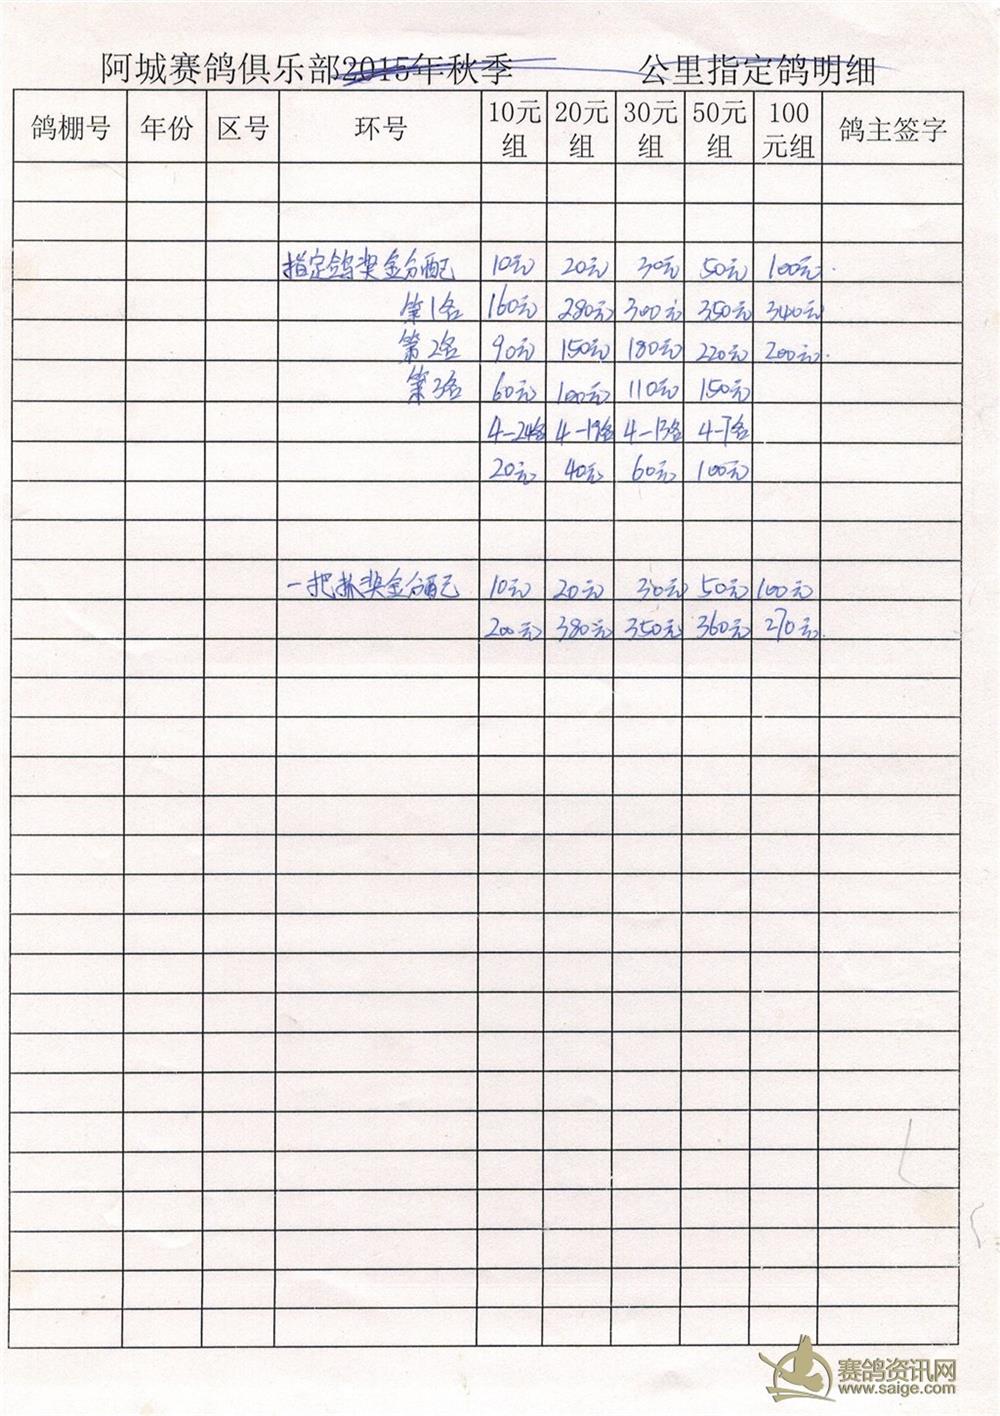 阿城赛鸽俱乐部2015年秋季 公里指定鸽明细
鸽棚号 年份 区号 环号 10元组 20元组 30元组 50元组 100元组 鸽主签字
指定鸽奖金分配 10元 20元 30元 50元 100元.
第1名 160元 280元 300元 350元 340元
第2名 90元 150元 180元 220元 200元.
第3名 60元 100元 110元 150元
4-24名 4-19名 4-13名 4-7名
20元 40元 60元 100元
一把抓奖金分配 10元 20元 30元 50元 100元
200元 380元 350元 360元 270元.
赛鸽资讯网
www.saige.com